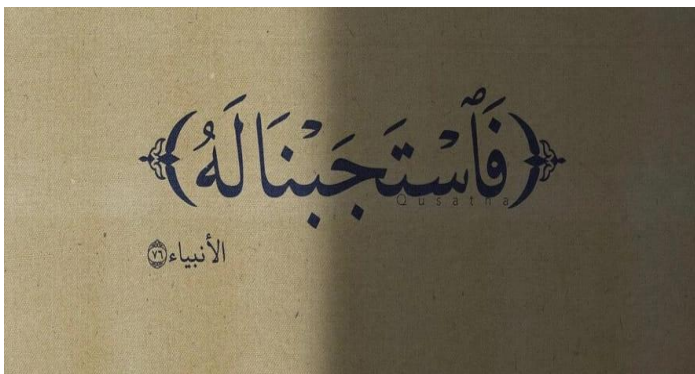 ﴿فَٱسۡتَجَبۡنَا لَهُۥ﴾
Qusatna
الأنبياء ٧٦